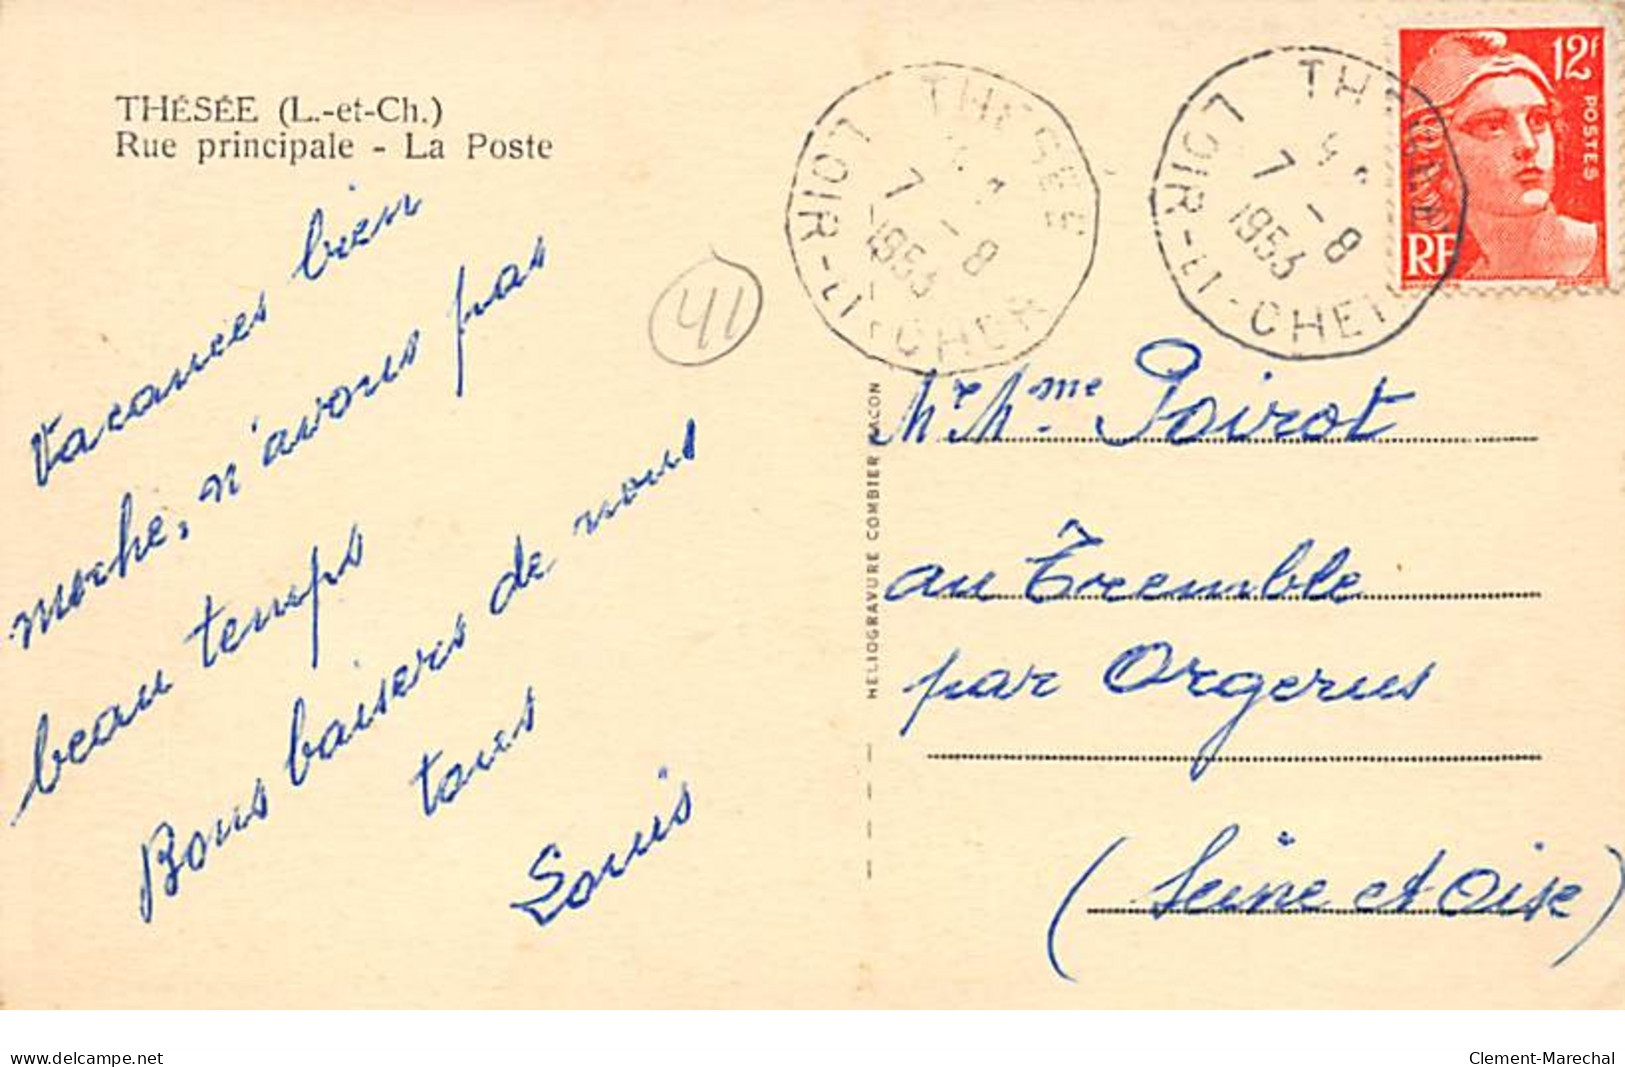 THÉSÉE (L.-et-Ch.)
Rue principale - La Poste
Vacances bien
moche, n'avons pas
beau temps
Bons baisers de nous
tous
Louis
41
THESEE
7 - 8
1953
LOIR-ET-CHER
THESEE
7 - 8
1953
LOIR-ET-CHER
12F
POSTES
RF
HELIOGRAVURE COMBIER MACON
Mr Mme Poirot
au Tremble
par Orgerus
(Seine et Oise)
www.delcampe.net
Clement-Marechal